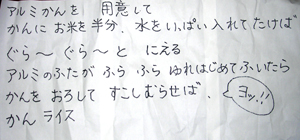 アルミかんを 用意して
かんに お米を半分、水をいっぱい入れてたけば
ぐら〜 ぐら〜 と にえる
アルミのふたが ふら ふら ゆれはじめてふいたら
かんを おろして すこしむらせば、
ヨッ!!
かん ライス